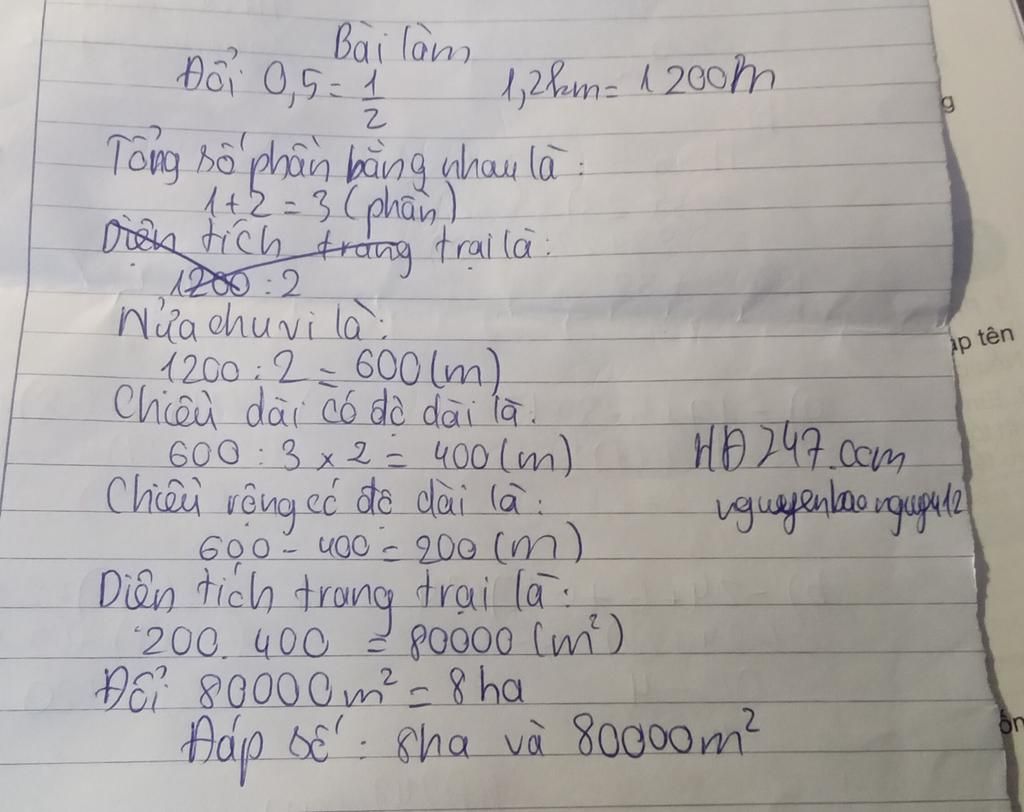 Bài làm
Đổi 0,5 = 1/2 1,2km = 1200m
Tổng số phần bằng nhau là:
1 + 2 = 3 (phần)
Diện tích trang trại là:
1200 : 2
Nửa chu vi là:
1200 : 2 = 600 (m)
Chiều dài có độ dài là:
600 : 3 x 2 = 400 (m)
HĐ247.com
Chiều rộng có độ dài là:
600 - 400 = 200 (m)
Diện tích trang trại là:
200. 400 = 80000 (m²)
Đổi 80000m² = 8 ha
Đáp số: 8ha và 80000m²
g
ập tên